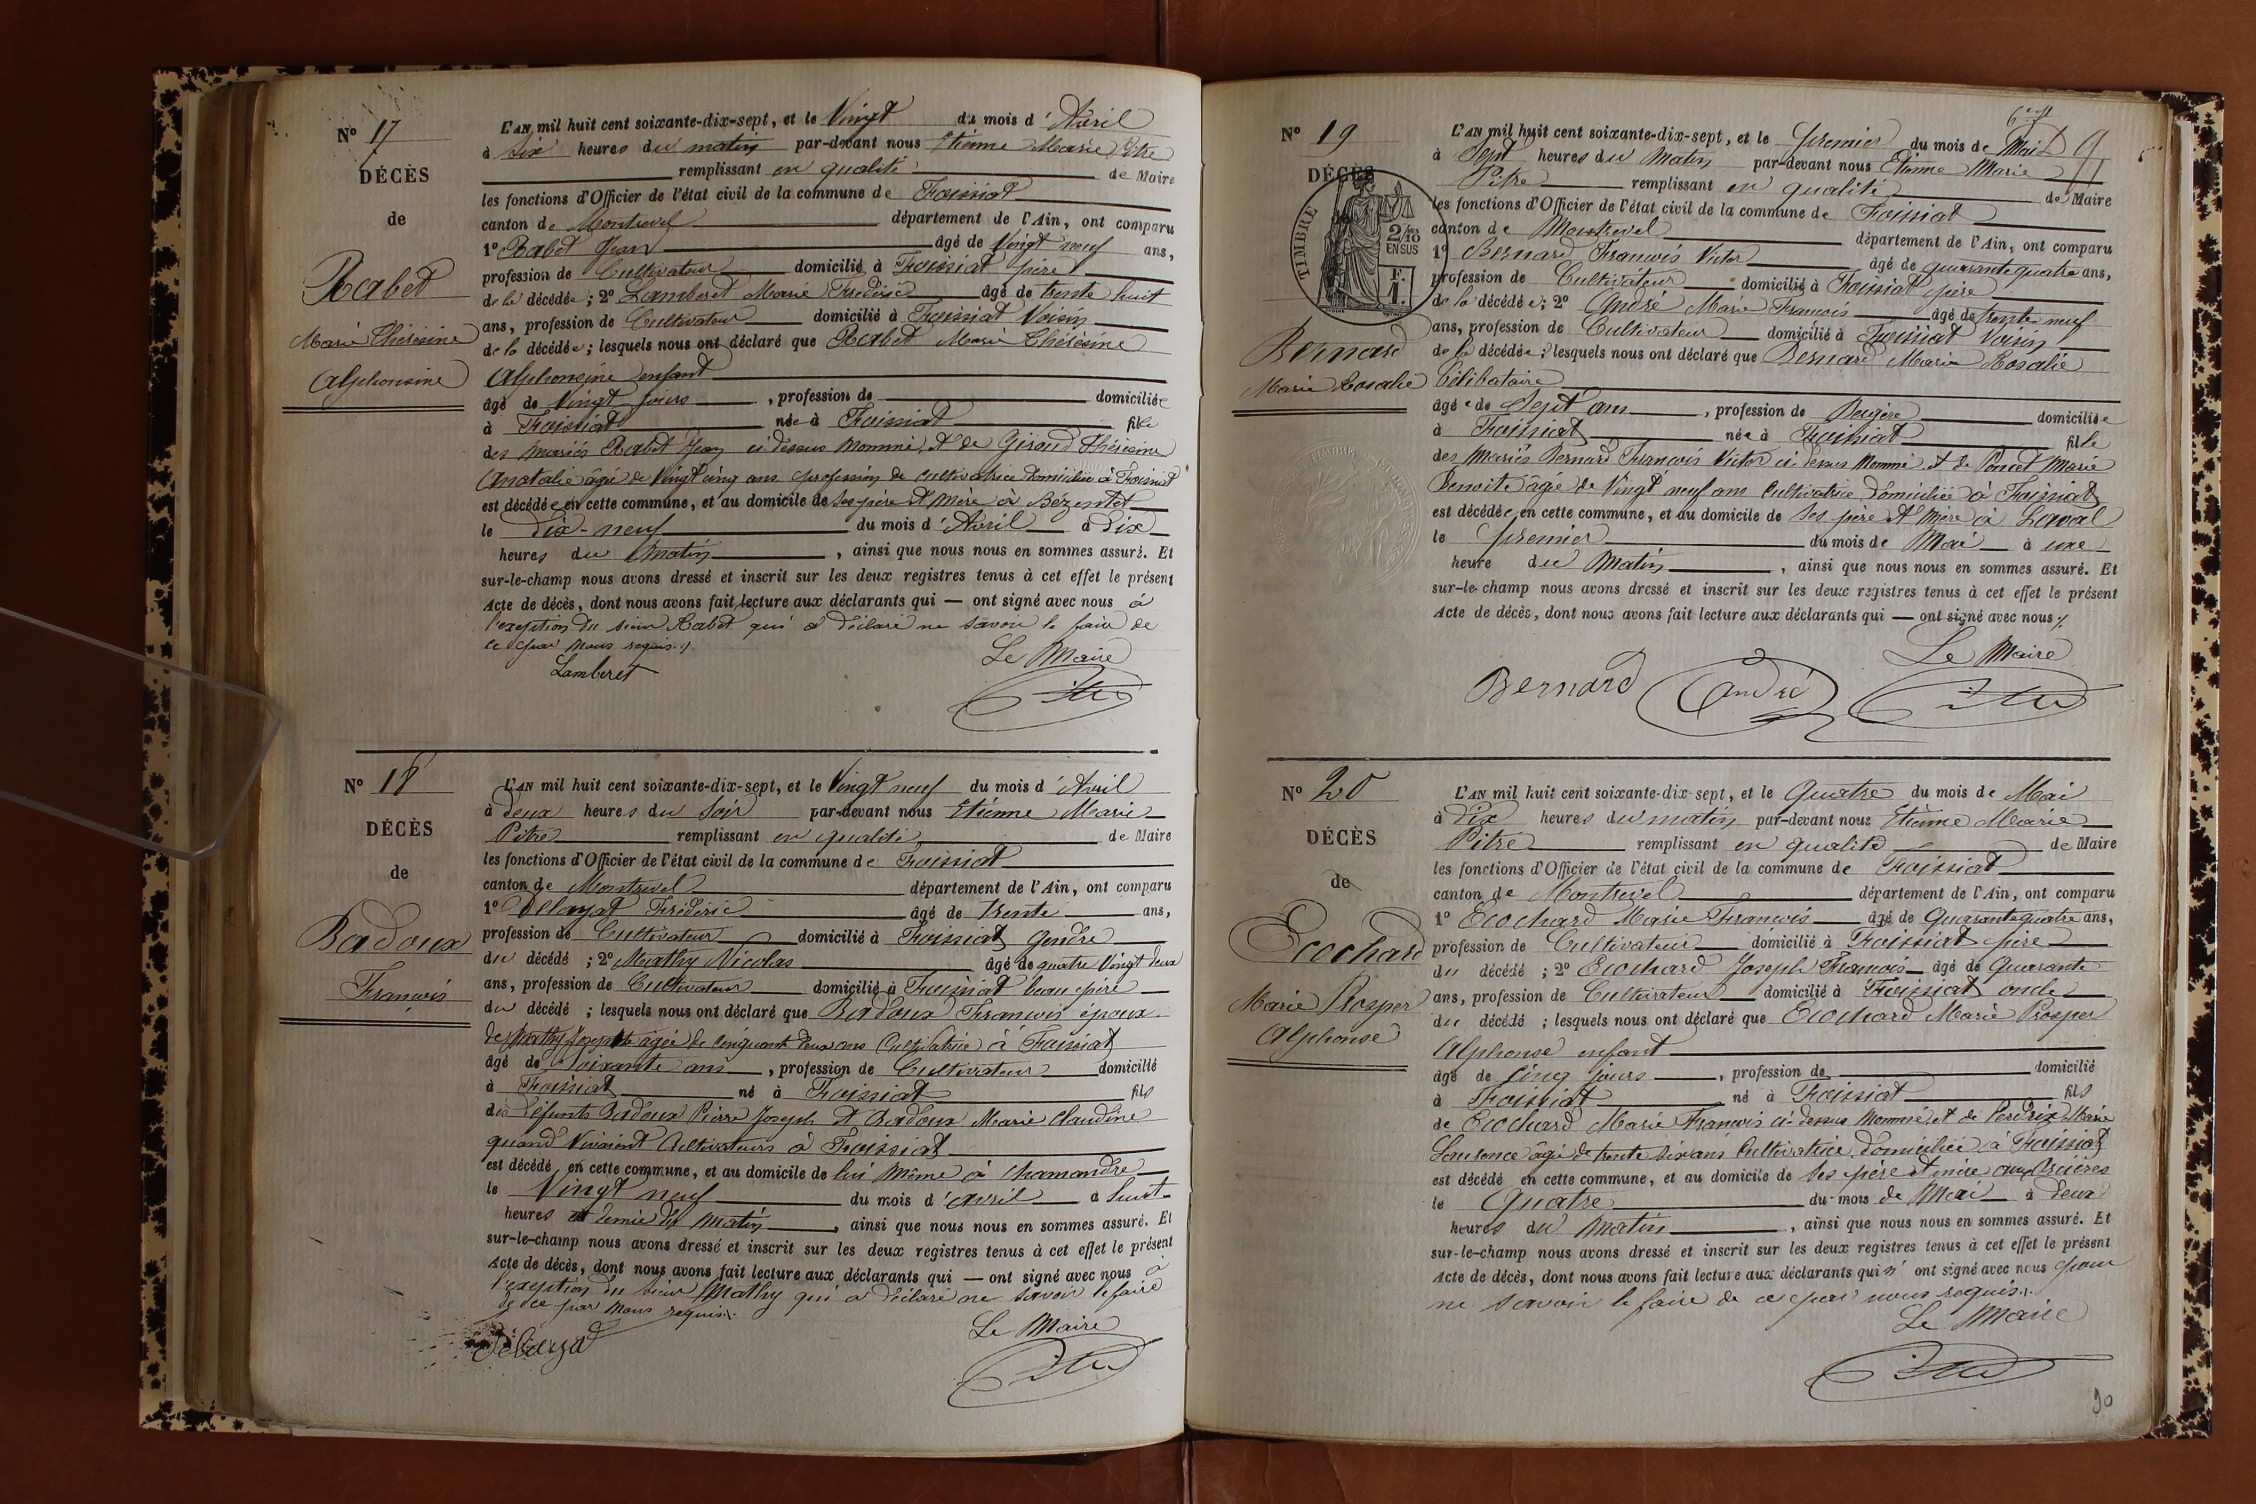 N° 17
DÉCÈS
de
Rabet
Marie Thérésine
Alphonsine
L'AN mil huit cent soixante-dix-sept, et le Vingt du mois d'Avril
à Six heures du matin par-devant nous Etienne Marie Pitre
remplissant en qualité de Maire
les fonctions d'Officier de l'état civil de la commune de Foissiat
canton de Montrevel département de l'Ain, ont comparu
1° Rabet Jean âgé de Vingt neuf ans,
profession de Cultivateur domicilié à Foissiat père
de la décédée ; 2° Lamberet Marie Frédéric âgé de trente huit
ans, profession de Cultivateur domicilié à Foissiat Voisin
de la décédée ; lesquels nous ont déclaré que Rabet Marie Thérésine
Alphonsine enfant
âgé de Vingt jours , profession de domiciliée
à Foissiat née à Foissiat fille
des mariés Rabet Jean ci dessus nommé, et de Giraud Thérésine
Anatalie âgée de Vingt cinq ans profession de cultivatrice domiciliée à Foissiat
est décédée en cette commune, et au domicile de ses père et mère à Bézentet
le Dix-neuf du mois d'Avril à Dix
heures du Matin , ainsi que nous nous en sommes assuré. Et
sur-le-champ nous avons dressé et inscrit sur les deux registres tenus à cet effet le présent
Acte de décès, dont nous avons fait lecture aux déclarants qui — ont signé avec nous à
l'exeption du sieur Rabet qui a déclaré ne savoir le faire de
ce par nous requis ./.
Le Maire
Lamberet
Pitre
N° 18
DÉCÈS
de
Badoux
François
L'AN mil huit cent soixante-dix-sept, et le Vingt neuf du mois d'Avril
à deux heures du Soir par-devant nous Etienne Marie
Pitre remplissant en qualité de Maire
les fonctions d'Officier de l'état civil de la commune de Foissiat
canton de Montrevel département de l'Ain, ont comparu
1° Delayat Frédéric âgé de trente ans,
profession de Cultivateur domicilié à Foissiat gendre
du décédé ; 2° Mathy Nicolas âgé de quatre Vingt deux
ans, profession de Cultivateur domicilié à Foissiat beau père
du décédé ; lesquels nous ont déclaré que Badoux François époux
de Mathy âgée de cinquante deux ans Cultivatrice à Foissiat
âgé de Soixante ans , profession de Cultivateur domicilié
à Foissiat né à Foissiat fils
des défunts Badoux Pierre Joseph et Badoux Marie Claudine
quand Vivaient Cultivateurs à Foissiat
est décédé en cette commune, et au domicile de lui même à Chamandre
le Vingt neuf du mois d'avril à huit
heures et demie du Matin , ainsi que nous nous en sommes assuré. Et
sur-le-champ nous avons dressé et inscrit sur les deux registres tenus à cet effet le présent
Acte de décès, dont nous avons fait lecture aux déclarants qui — ont signé avec nous à
l'exeption du sieur Mathy qui a déclaré ne savoir le faire
de ce par nous requis ./.
Le Maire
Pitre
N° 19
DÉCÈS
TIMBRE
2/10
EN SUS
F.
1.
Bernard
Marie Rosalie
L'AN mil huit cent soixante-dix-sept, et le Premier du mois de Mai
à Sept heures du Matin par-devant nous Etienne Marie
Pitre remplissant en qualité de Maire
les fonctions d'Officier de l'état civil de la commune de Foissiat
canton de Montrevel département de l'Ain, ont comparu
1° Bernard François Victor âgé de quarante quatre ans,
profession de Cultivateur domicilié à Foissiat père
de la décédée ; 2° André Marie François âgé de trente neuf
ans, profession de Cultivateur domicilié à Foissiat Voisin
de la décédée ; lesquels nous ont déclaré que Bernard Marie Rosalie
Célibataire
âgée de Sept ans , profession de Bergère domiciliée
à Foissiat née à Foissiat fille
des Mariés Bernard François Victor ci dessus nommé et de Poncet Marie
Benoite âgée de Vingt neuf ans Cultivatrice domiciliée à Foissiat
est décédée en cette commune, et au domicile de ses père et mère à Laval
le premier du mois de Mai à une
heure du Matin , ainsi que nous nous en sommes assuré. Et
sur-le-champ nous avons dressé et inscrit sur les deux registres tenus à cet effet le présent
Acte de décès, dont nous avons fait lecture aux déclarants qui — ont signé avec nous ./.
Le Maire
Bernard André Pitre
N° 20
DÉCÈS
de
Ecochard
Marie Prosper
Alphonse
L'AN mil huit cent soixante-dix-sept, et le Quatre du mois de Mai
à Dix heures du matin par-devant nous Etienne Marie
Pitre remplissant en qualité de Maire
les fonctions d'Officier de l'état civil de la commune de Foissiat
canton de Montrevel département de l'Ain, ont comparu
1° Ecochard Marie François âgé de Quarante quatre ans,
profession de Cultivateur domicilié à Foissiat père
du décédé ; 2° Ecochard Joseph François âgé de Quarante
ans, profession de Cultivateur domicilié à Foissiat oncle
du décédé ; lesquels nous ont déclaré que Ecochard Marie Prosper
Alphonse enfant
âgé de Cinq jours , profession de domicilié
à Foissiat né à Foissiat fils
de Ecochard Marie François ci-dessus nommé, et de Perdrix Marie
âgée de trente six ans Cultivatrice domiciliée à Foissiat
est décédé en cette commune, et au domicile de ses père et mère aux
le Quatre du mois de Mai à Deux
heures du Matin , ainsi que nous nous en sommes assuré. Et
sur-le-champ nous avons dressé et inscrit sur les deux registres tenus à cet effet le présent
Acte de décès, dont nous avons fait lecture aux déclarants qui n'ont signé avec nous pour
ne savoir le faire de ce par nous requis ./.
Le Maire
Pitre